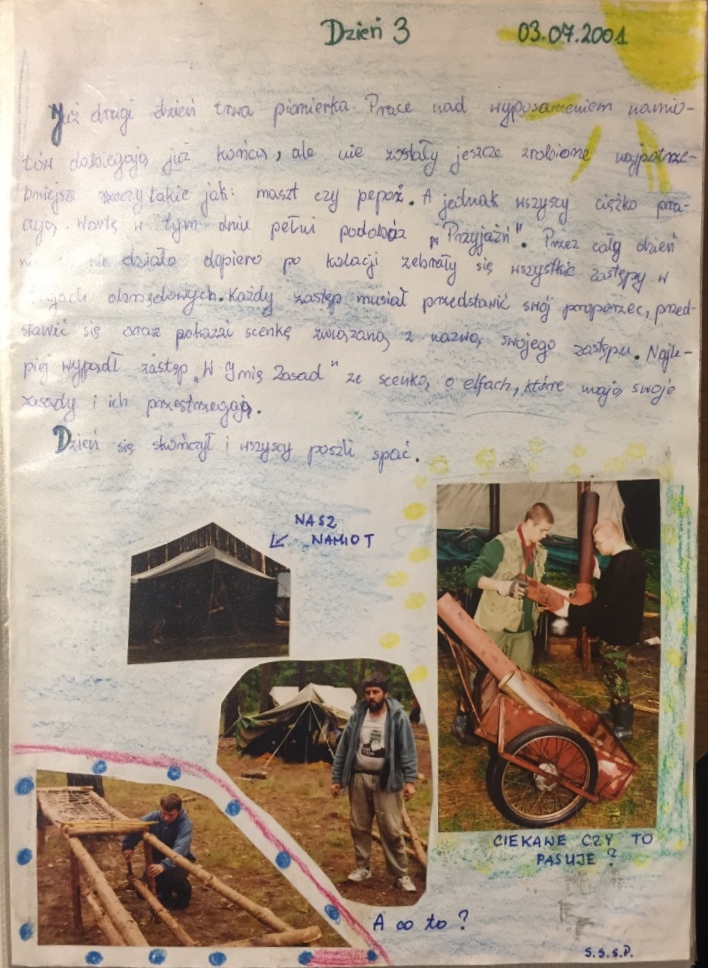 Dzień 3 03.07.2001
Już drugi dzień trwa pionierka. Prace nad wyposażeniem namio-
tów dobiegają już końca, ale nie zostały jeszcze zrobione najpotrze-
bniejsze rzeczy takie jak: maszt czy pepoż. A jednak wszyscy ciężko pra-
cują. Wartę w tym dniu pełni podobóz "Przyjaźń". Przez cały dzień
nie działo dopiero po kolacji zebrały się wszystkie zastępy w
obrzędowych. Każdy zastęp musiał przedstawić swój proporzec, przed-
stawić się oraz pokazać scenkę związaną z nazwą swojego zastępu. Najle-
piej wypadł zastęp "W Imię Zasad" ze scenką o elfach, które mają swoje
zasady i ich przestrzegają.
Dzień się skończył i wszyscy poszli spać.
NASZ
NAMIOT
CIEKAWE CZY TO
PASUJE?
A co to?
S.S.S.P.